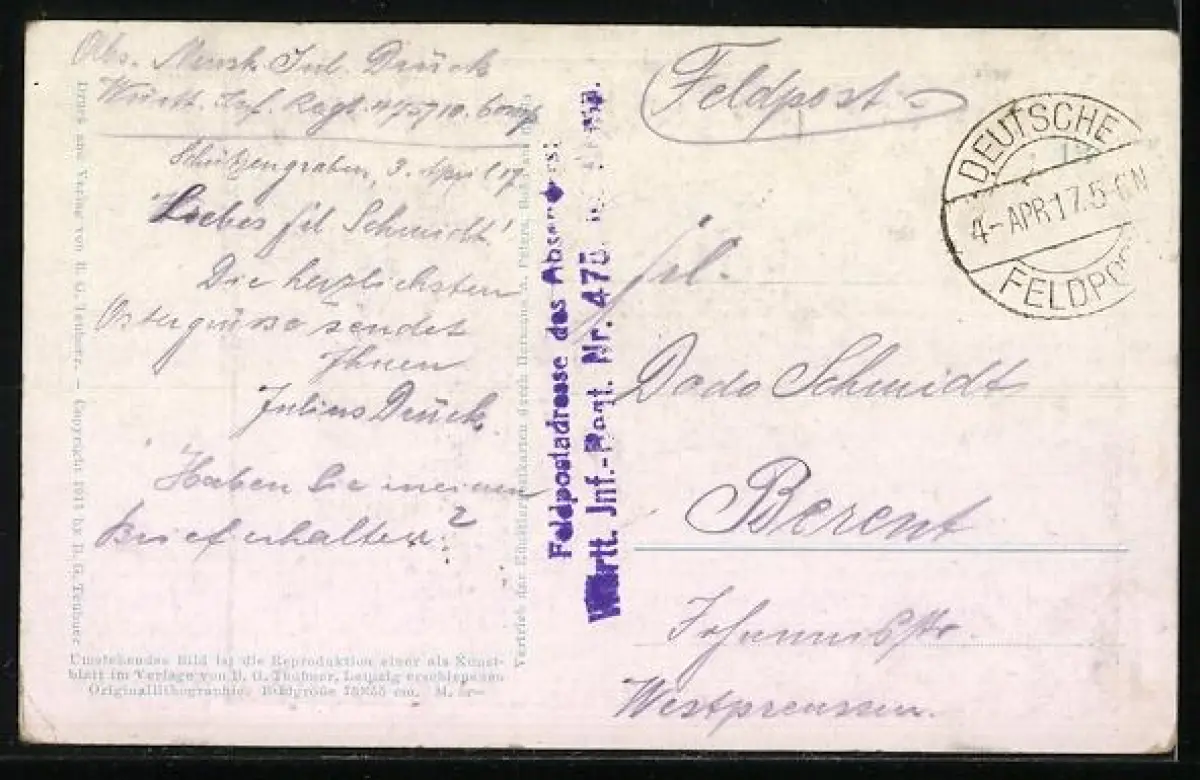 Abs. Musk. Jul. Drück
Württ. Inf. Regt. 475/10. Comp
Schützengraben, 3. April 17.
Liebes frl Schmidt!
Die herzlichsten
Ostergrüsse sendet
Ihnen
Julius Drück.
Haben Sie meinen
Brief erhalten?
Umstehendes Bild ist die Reproduktion einer als Künst-
blatt im Verlage von B. G. Teubner, Leipzig erschienenen
Originallithographie. Bildgröße 75X55 cm. M.
Druck und Verlag von B. G. Teubner. — Copyright 1911 by B. G. Teubner
Vertrieb der Künstlerpostkarten durch Hermann A. Peters,
Feldpostadresse des Absenders:
Württ. Jnf.-Regt. Nr. 475.
Feldpost
DEUTSCHE
4-APR17.5-6N
FELDPOST
frl.
Dodo Schmidt
Berent
Johannisstr.
Westpreussen.